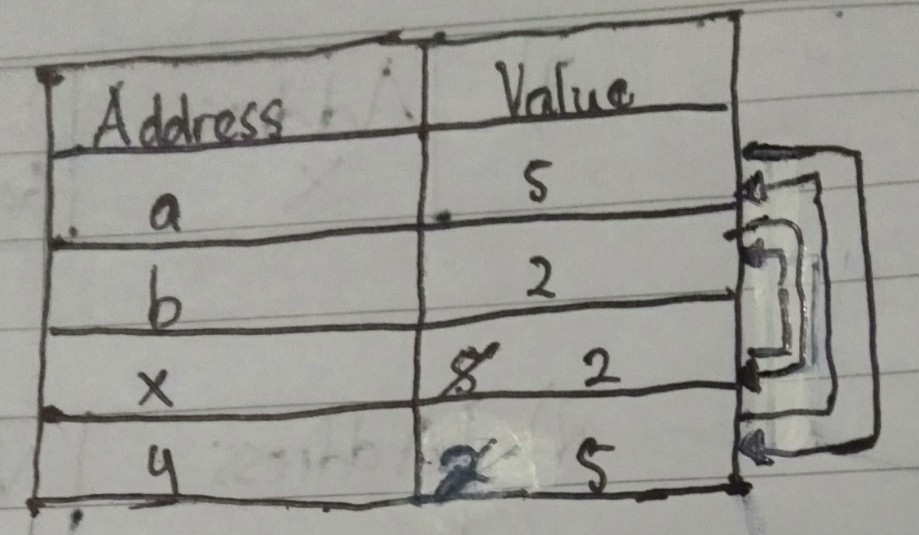 Address Value
a 5
b 2
x 5 2
y 2 5